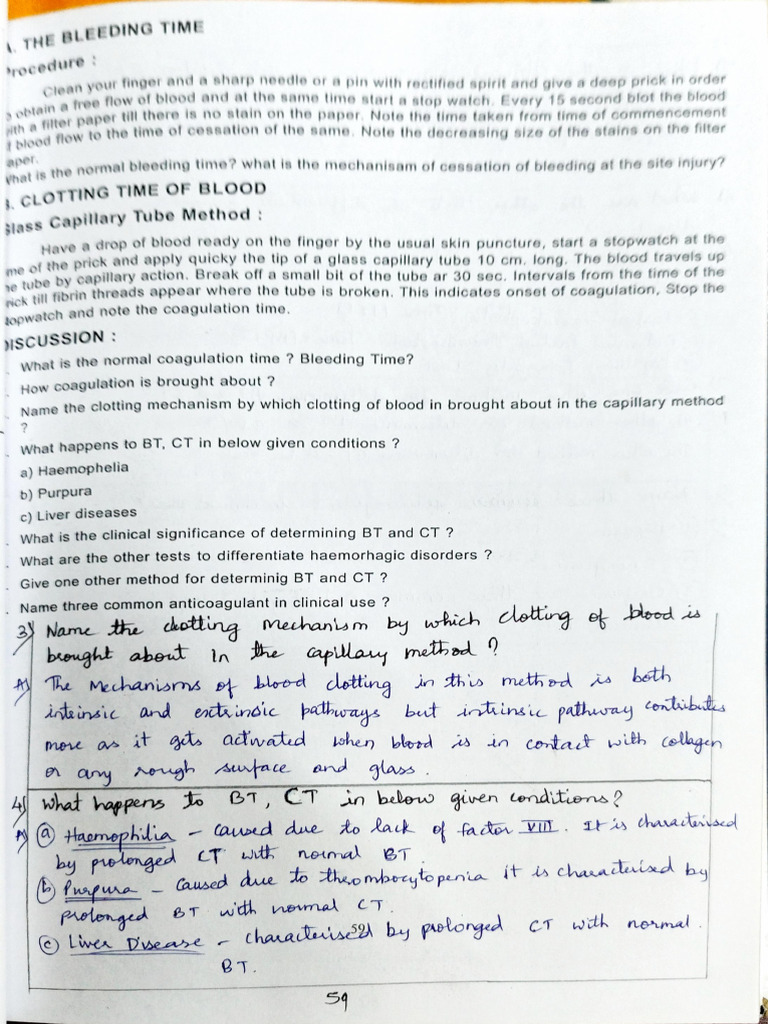 . THE BLEEDING TIME
rocedure :
Clean your finger and a sharp needle or a pin with rectified spirit and give a deep prick in order
obtain a free flow of blood and at the same time start a stop watch. Every 15 second blot the blood
ith a filter paper till there is no stain on the paper. Note the time taken from time of commencement
f blood flow to the time of cessation of the same. Note the decreasing size of the stains on the filter
aper.
hat is the normal bleeding time? what is the mechanisam of cessation of bleeding at the site injury?
. CLOTTING TIME OF BLOOD
lass Capillary Tube Method :
Have a drop of blood ready on the finger by the usual skin puncture, start a stopwatch at the
me of the prick and apply quicky the tip of a glass capillary tube 10 cm. long. The blood travels up
e tube by capillary action. Break off a small bit of the tube ar 30 sec. Intervals from the time of the
rick till fibrin threads appear where the tube is broken. This indicates onset of coagulation, Stop the
topwatch and note the coagulation time.
ISCUSSION :
What is the normal coagulation time ? Bleeding Time?
How coagulation is brought about ?
Name the clotting mechanism by which clotting of blood in brought about in the capillary method
?
What happens to BT, CT in below given conditions ?
a) Haemophelia
b) Purpura
c) Liver diseases
What is the clinical significance of determining BT and CT ?
What are the other tests to differentiate haemorhagic disorders ?
Give one other method for determinig BT and CT ?
Name three common anticoagulant in clinical use ?
3) Name the clotting mechanism by which clotting of blood is
brought about in the capillary method ?
A) The Mechanisms of blood clotting in this method is both
intrinsic and extrinsic pathways but intrinsic pathway contributes
more as it gets activated when blood is in contact with collagen
or any rough surface and glass.
4) What happens to BT, CT in below given conditions?
A) (a) Haemophilia - Caused due to lack of factor VIII. It is characterised
by prolonged CT with normal BT.
(b) Purpura - Caused due to thrombocytopenia it is characterised by
prolonged BT with normal CT.
(c) Liver Disease - characterised by prolonged CT with normal.
BT.
59
59